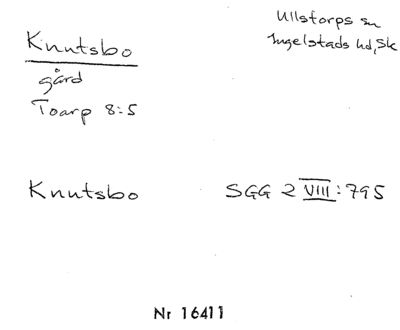 Knutsbo
gård
Toarp 8:5
Ullstorps sn
Ingelstads hd, Sk
Knutsbo
SGG 2 VIII: 795
Nr 16411